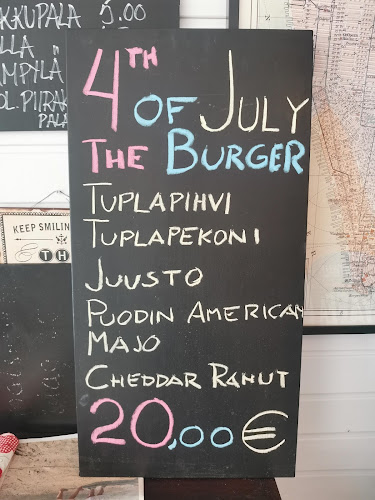 KKUPALA 5.00
LLA
MPYLÄ
OL.PIIRAK
PALA
4TH
OF JULY
THE BURGER
TUPLAPIHVI
TUPLAPEKONI
JUUSTO
PUODIN AMERICAN
MAJO
CHEDDAR RANUT
20,00 €
KEEP SMILIN
& TH